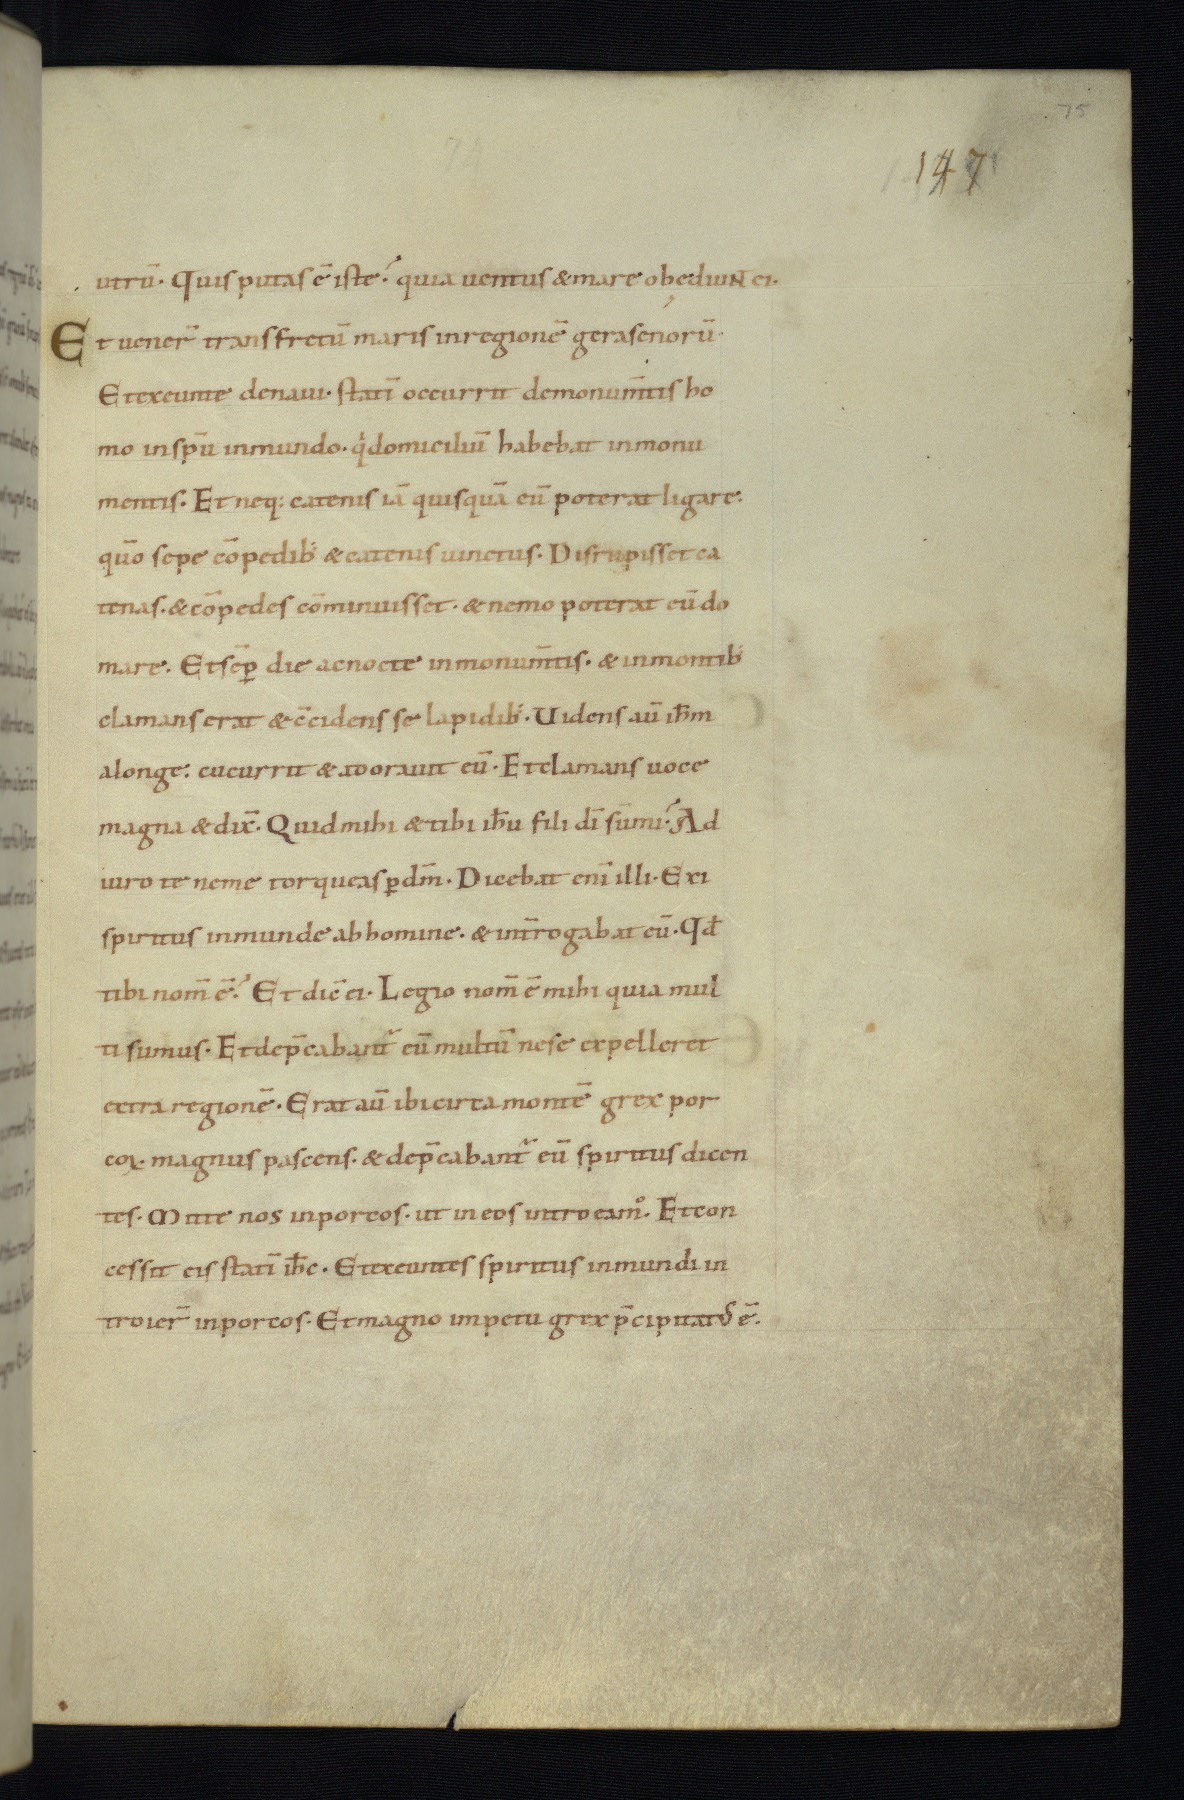 75
147
utrū. Quis putas ē iste? quia uentus & mare obediuNt ei.
Et uener̄ trans fretū maris in regionē gerasenorū.
Et exeunte de naui. statī occurrit de monum̄tis ho
mo in sp̄u inmundo. qⁱ domiciliū habebat in monu
mentis. Et neq; catenis iā quisquā eū poterat ligare.
quō sepe cōpedib; & catenis uinctus. Disrupisset ca
tenas. & cōpedes cōminuisset. & nemo poterat eū do
mare. Et sēꝑ die ac nocte in monum̄tis. & in montib;
clamans erat & c̄cidens se lapidib;. Uidens aū ih̄m
a longe. cucurrit & adorauit eū. Et clamans uoce
magna & dix̄. Quid mihi & tibi ih̄u fili dī sūmi? Ad
iuro te ne me torqueas ꝑ dm̄. Dicebat enī illi. Exi
spiritus inmunde ab homine. & int̄rogabat eū. Qđ
tibi nom̄ ē? Et dic̄ ei. Legio nom̄ ē mihi quia mul
ti sumus. Et dep̄cabant᷑ eū multū ne se expelleret
extra regionē. Erat aū ibi circa montē grex por
coꝝ magnus pascens. & dep̄cabant᷑ eū spiritus dicen
tes. Mitte nos in porcos. ut in eos introeamꝰ. Et con
cessit eis statī ih̄c. Et exeuntes spiritus inmundi in
troier̄ in porcos. Et magno impetu grex p̄cipitatꝰ ē.